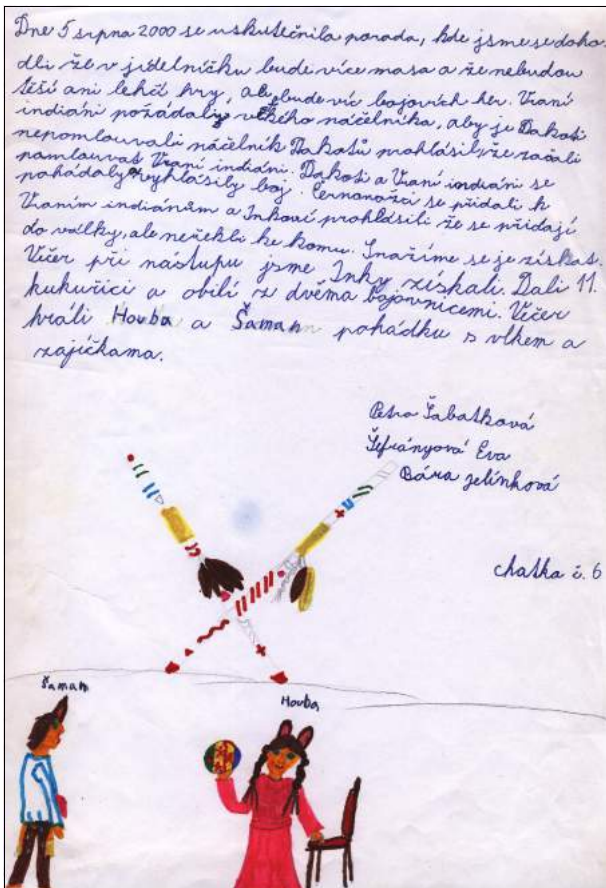 Dne 5 srpna 2000 se uskutečnila porada, kde jsme se doho
dli že v jídelníčku bude více masa a že nebudou
těší ani lehčí hry, ale bude víc bojových her. Vraní
indiáni požádaly velkého náčelníka, aby je Dakoti
nepomlouvali náčelník Dakotů prohlásil, že začali
pomlouvat Vraní indiáni. Dakoti a Vraní indiáni se
pohádaly a vyhlásily boj. Černonožci se přidali k
Vraním indiánům a Inkové prohlásili že se přidají
do války, ale neřekli ke komu. Snažíme se je získat.
Večer při nástupu jsme Inky získali. Dali 11.
kukuřici a obilí z dvěma bojovnicemi. Večer
hráli Houba a Šaman pohádku s vlkem a
zajíčkama.
Petra Šabatková
Šefrányová Eva
Bára Jelínková
chatka č. 6
Šaman
Houba